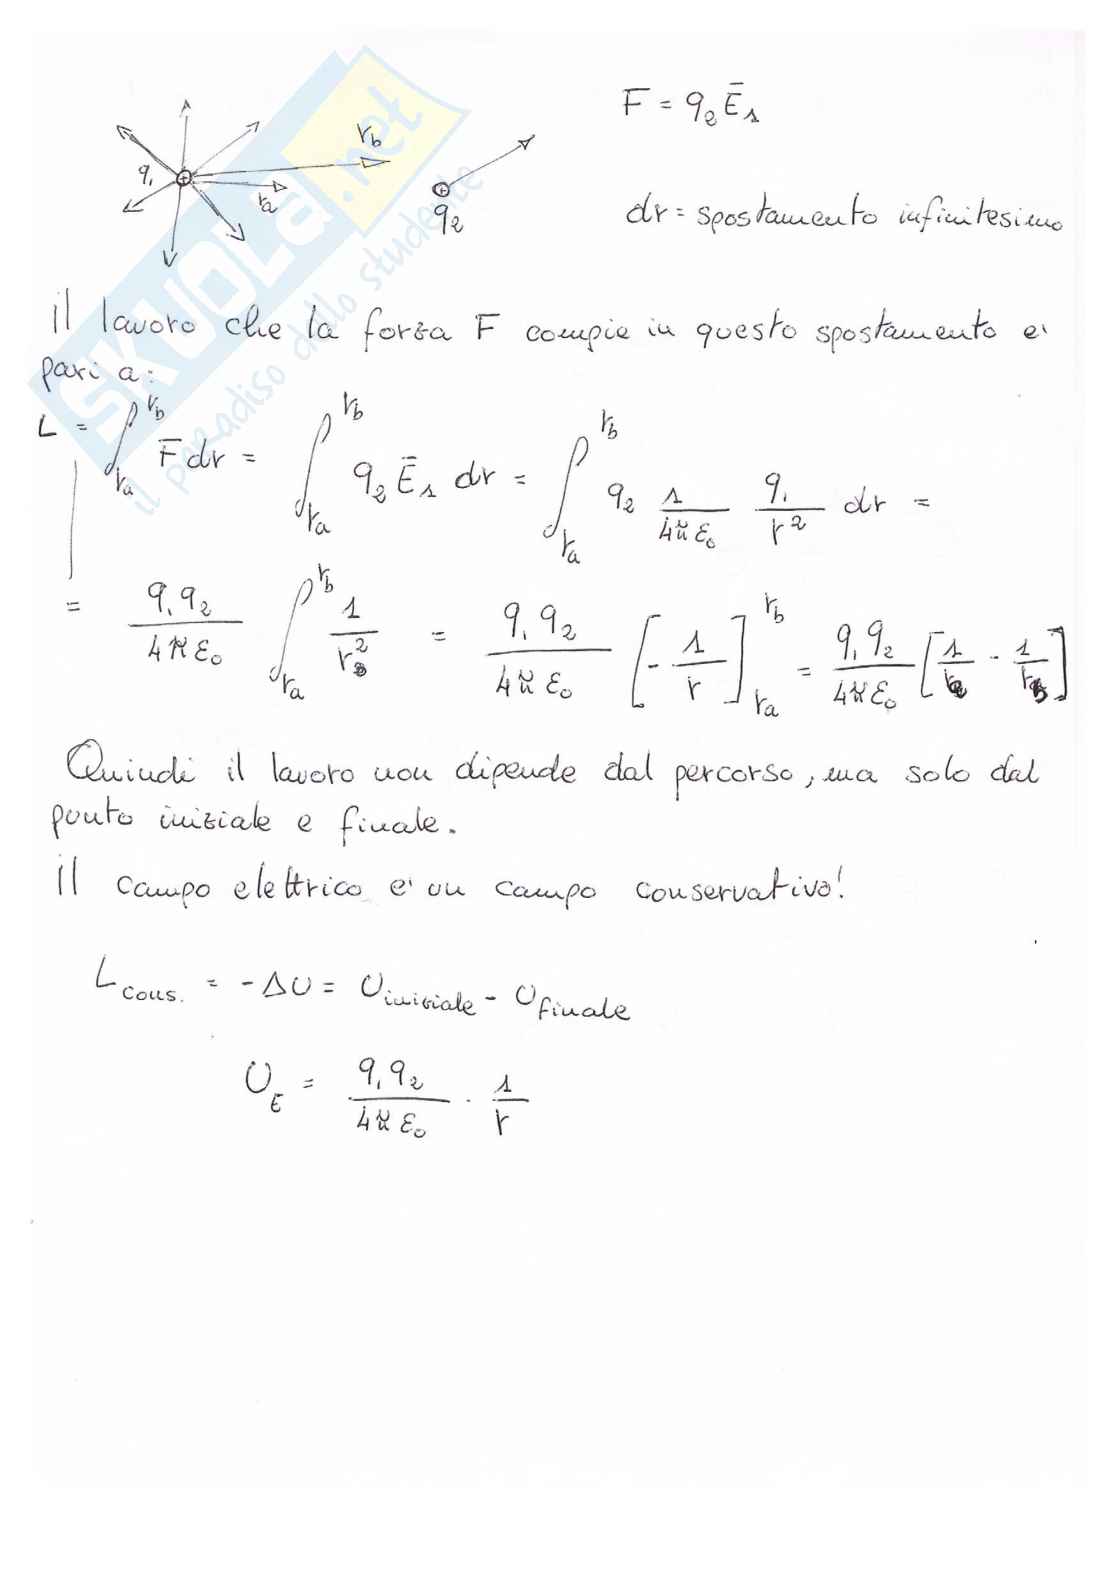 F = q₂ Ē₁
r_b
q₁
r_a
q₂
dr = spostamento infinitesimo
SKUOLA.net
il paradiso dello studente
il lavoro che la forza F compie in questo spostamento e'
pari a:
L = ∫_{r_a}^{r_b} F̄ dr = ∫_{r_a}^{r_b} q₂ Ē₁ dr = ∫_{r_a}^{r_b} q₂ 1/(4πε₀) q₁/r² dr =
= q₁q₂/(4πε₀) ∫_{r_a}^{r_b} 1/r² = q₁q₂/(4πε₀) [-1/r]_{r_a}^{r_b} = q₁q₂/(4πε₀) [1/r_a - 1/r_b]
Quindi il lavoro non dipende dal percorso, ma solo dal
punto iniziale e finale.
il campo elettrico e' un campo conservativo!
L_cons. = -ΔU = U_iniziale - U_finale
U_E = q₁q₂/(4πε₀) · 1/r